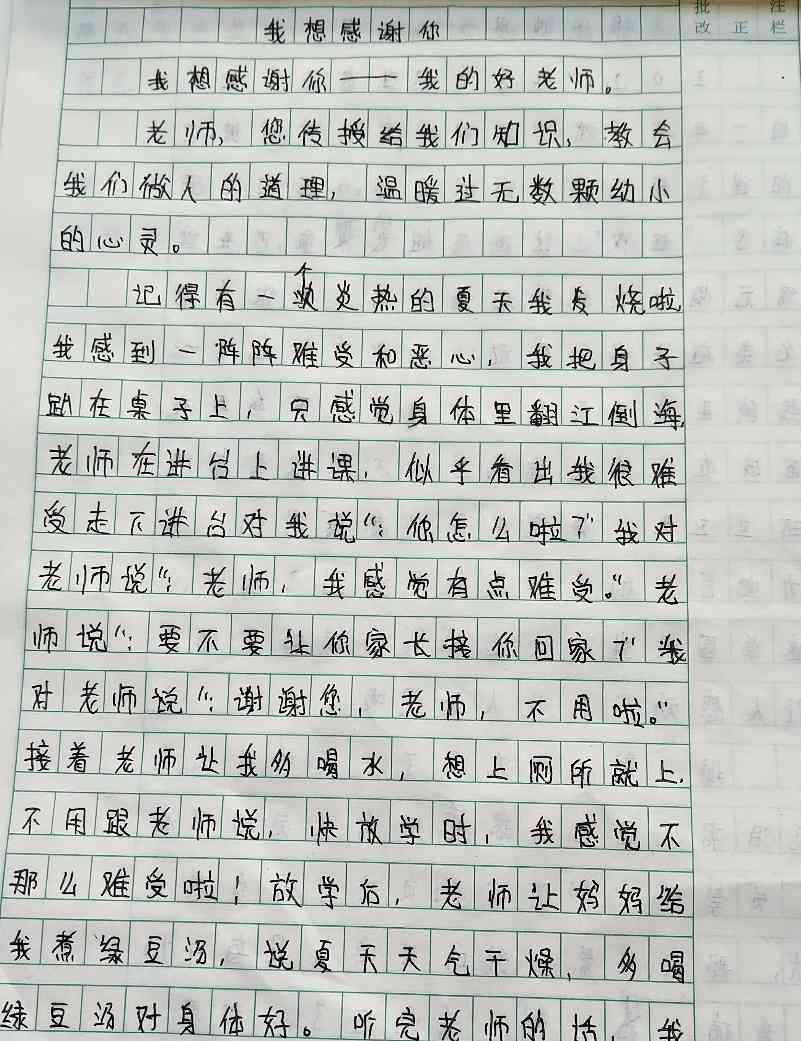 批 注
改 正 栏
我想感谢你
我想感谢你——我的好老师。
老师,您传授给我们知识,教会
我们做人的道理,温暖过无数颗幼小
的心灵。
记得有一个炎热的夏天我发烧啦,
我感到一阵阵难受和恶心,我把身子
趴在桌子上,只感觉身体里翻江倒海,
老师在讲台上讲课,似乎看出我很难
受走下讲台对我说“:你怎么啦?”我对
老师说“:老师,我感觉有点难受。”老
师说“:要不要让你家长接你回家?”我
对老师说“:谢谢您,老师,不用啦。”
接着老师让我多喝水,想上厕所就上,
不用跟老师说,快放学时,我感觉不
那么难受啦!放学后,老师让妈妈给
我煮绿豆汤,说夏天天气干燥,多喝
绿豆汤对身体好。听完老师的话,我